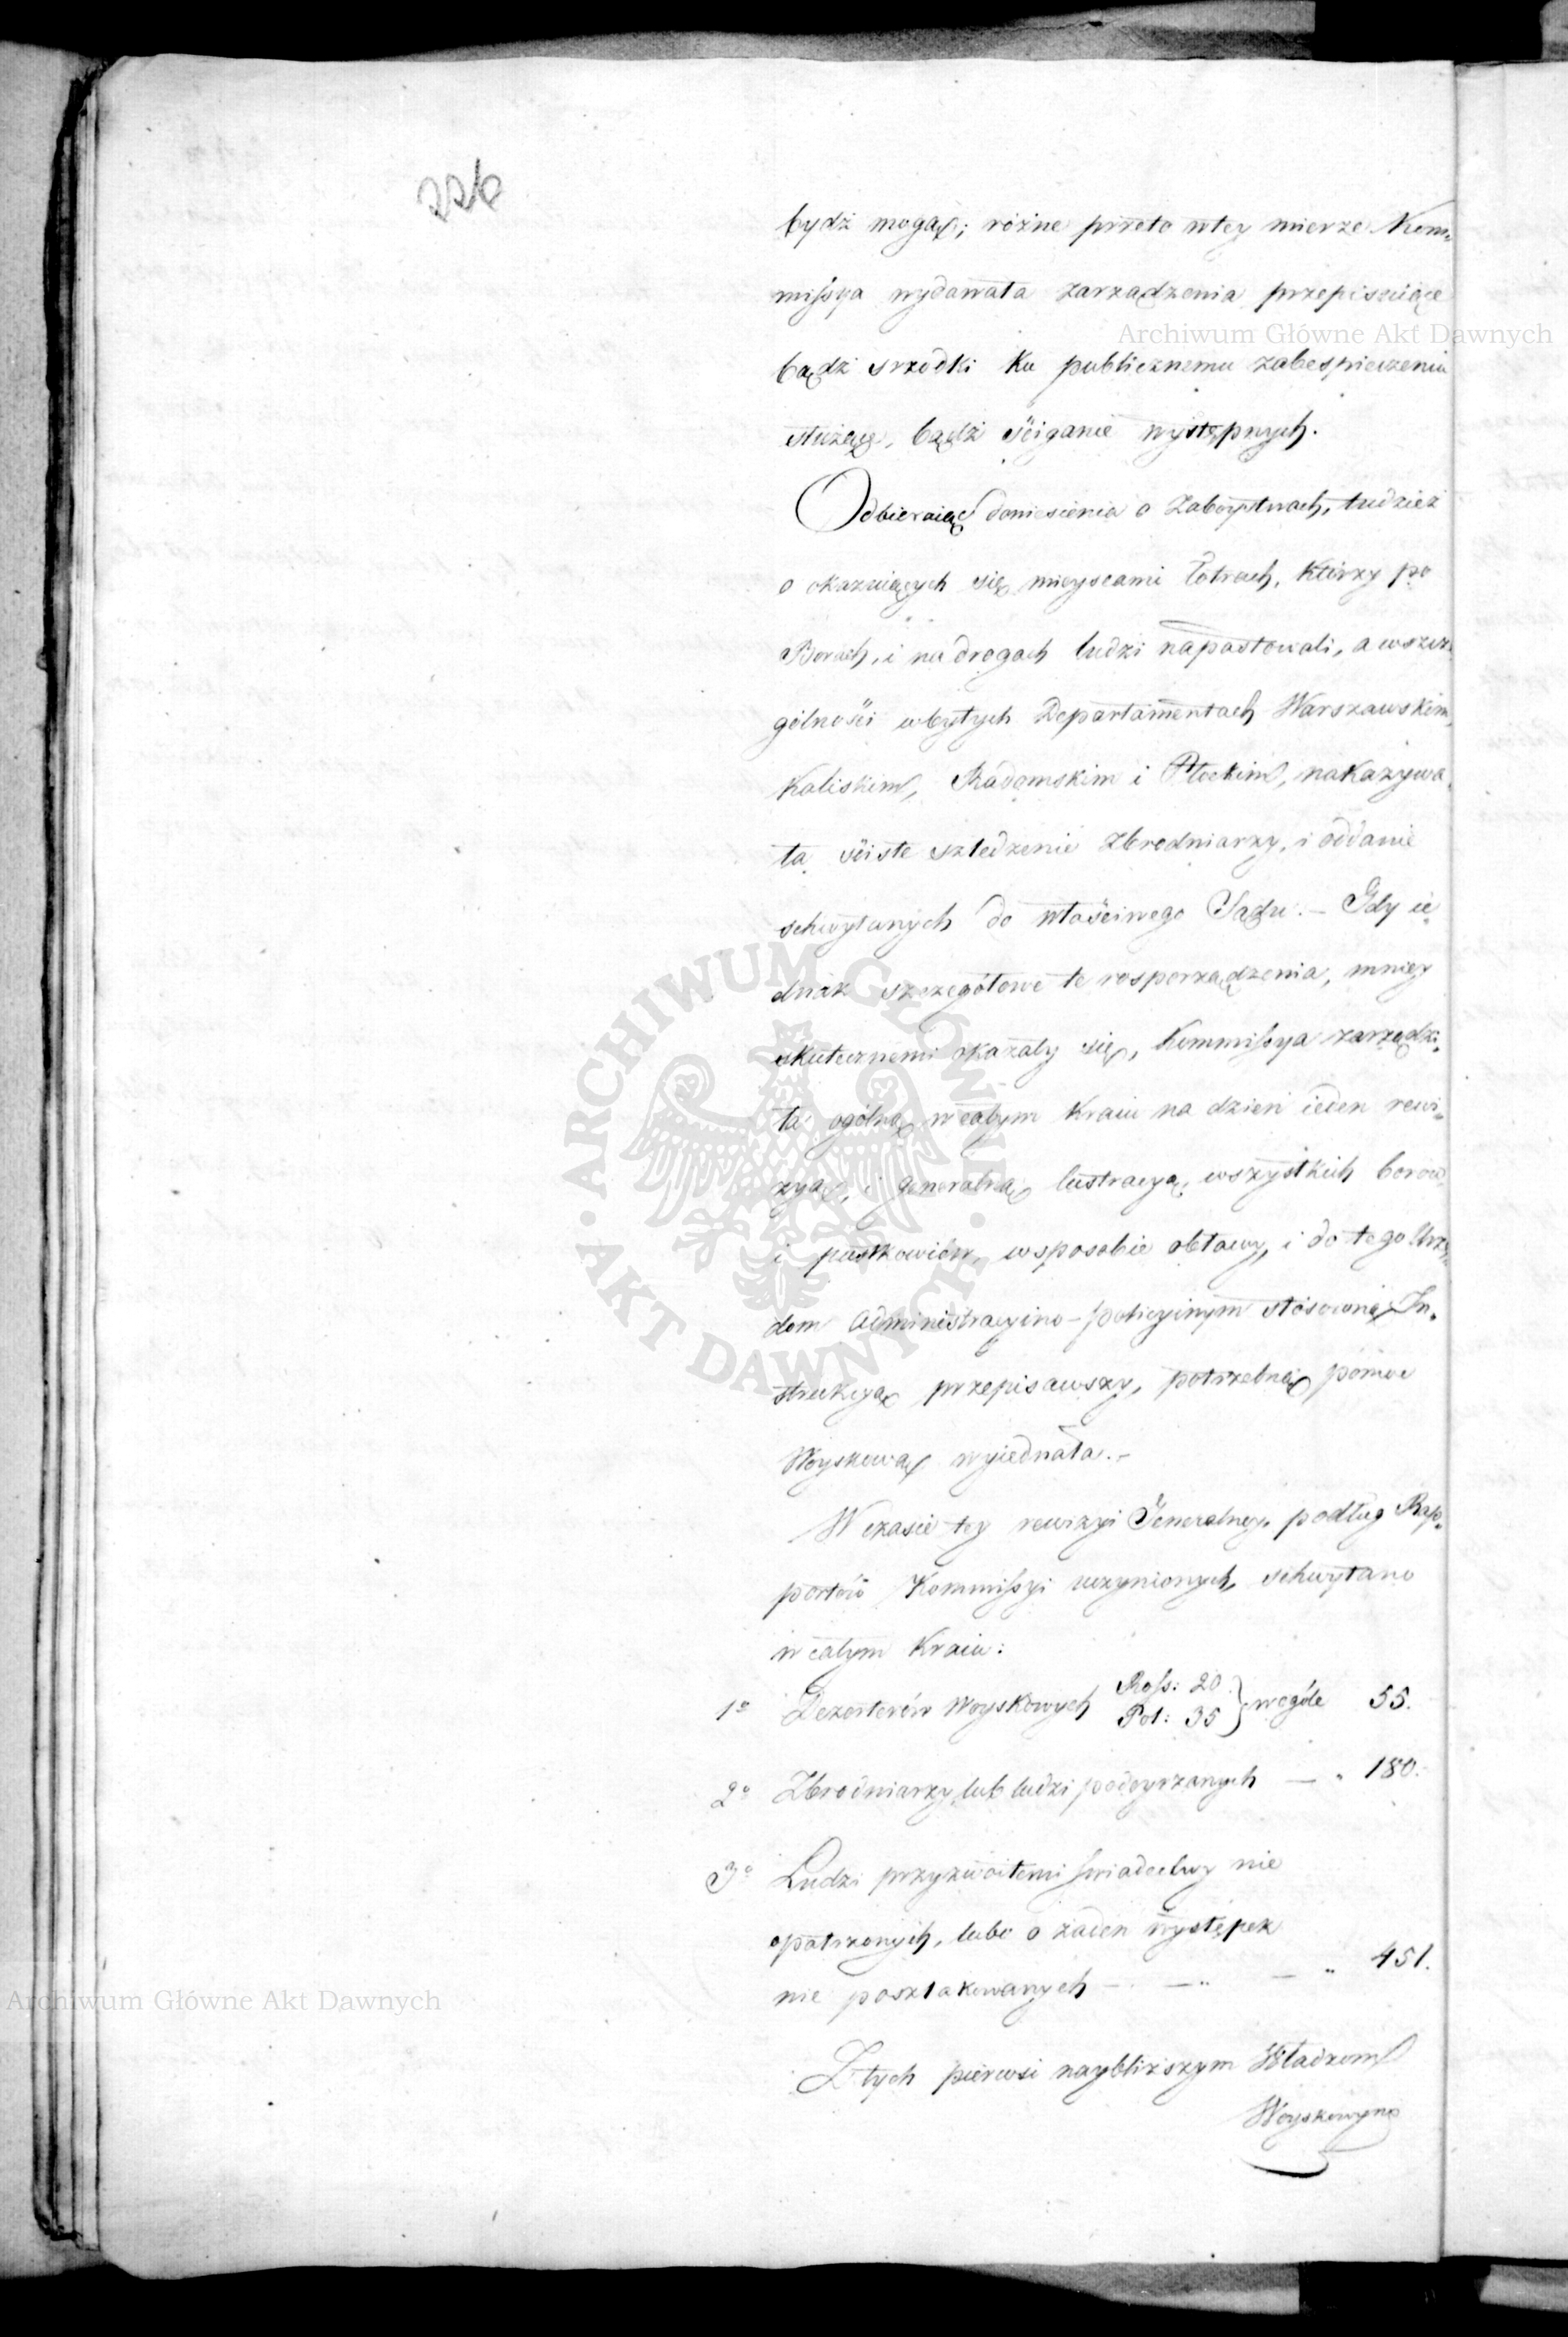 226
bydź mogą; różne przeto w tey mierze Kom„
missya wydawała zarządzenia przepisuiące
bądź srzodki ku publicznemu zabespieczeniu
służące, bądź ściganie występnych.
Odbieraiąc doniesienia o Zaboystwach, tudzież
o okazuiących się mieyscami łotrach, którzy po
Borach, i na drogach ludzi napastowali, a w szcze„
gólności w bytych Departamentach Warszawskim,
Kaliskim, Radomskim i Płockim, nakazywa„
ła ściste szledzenie Zbrodniarzy, i oddanie
schwytanych do właściwego Sądu. – Gdy ie„
dnak szczegółowe te rosporządzenia, mniey
skutecznemi okazały się, Kommissya zarządzi„
ła ogólną w całym Kraiu na dzień ieden rewi„
zyą, i generalną lustracyą wszystkich borów
i pustkowiów, w sposobie obławy, i do tego Urzę„
dom Administracyino-policyinym stósowną In„
strukcyą przepisawszy, potrzebną pomoc
Woyskową wyiednała. –
W czasie tey rewizyi Generalney, podług Rap„
portów Kommissyi uczynionych, schwytano
w całym Kraiu:
1o Dezerterów Woyskowych Ross: 20. Pol: 35 } wogóle 55.
2o Zbrodniarzy, lub ludzi podeyrzanych — „ 180.
3o Ludzi przyzwoitemi świadectwy nie
opatrzonych, lubo o żaden występek
nie poszlakowanych — — „ — „ 451.
Z tych pierwsi naybliższym Władzom
Woyskowym
Archiwum Główne Akt Dawnych
Archiwum Główne Akt Dawnych
ARCHIWUM GŁÓWNE · AKT DAWNYCH ·